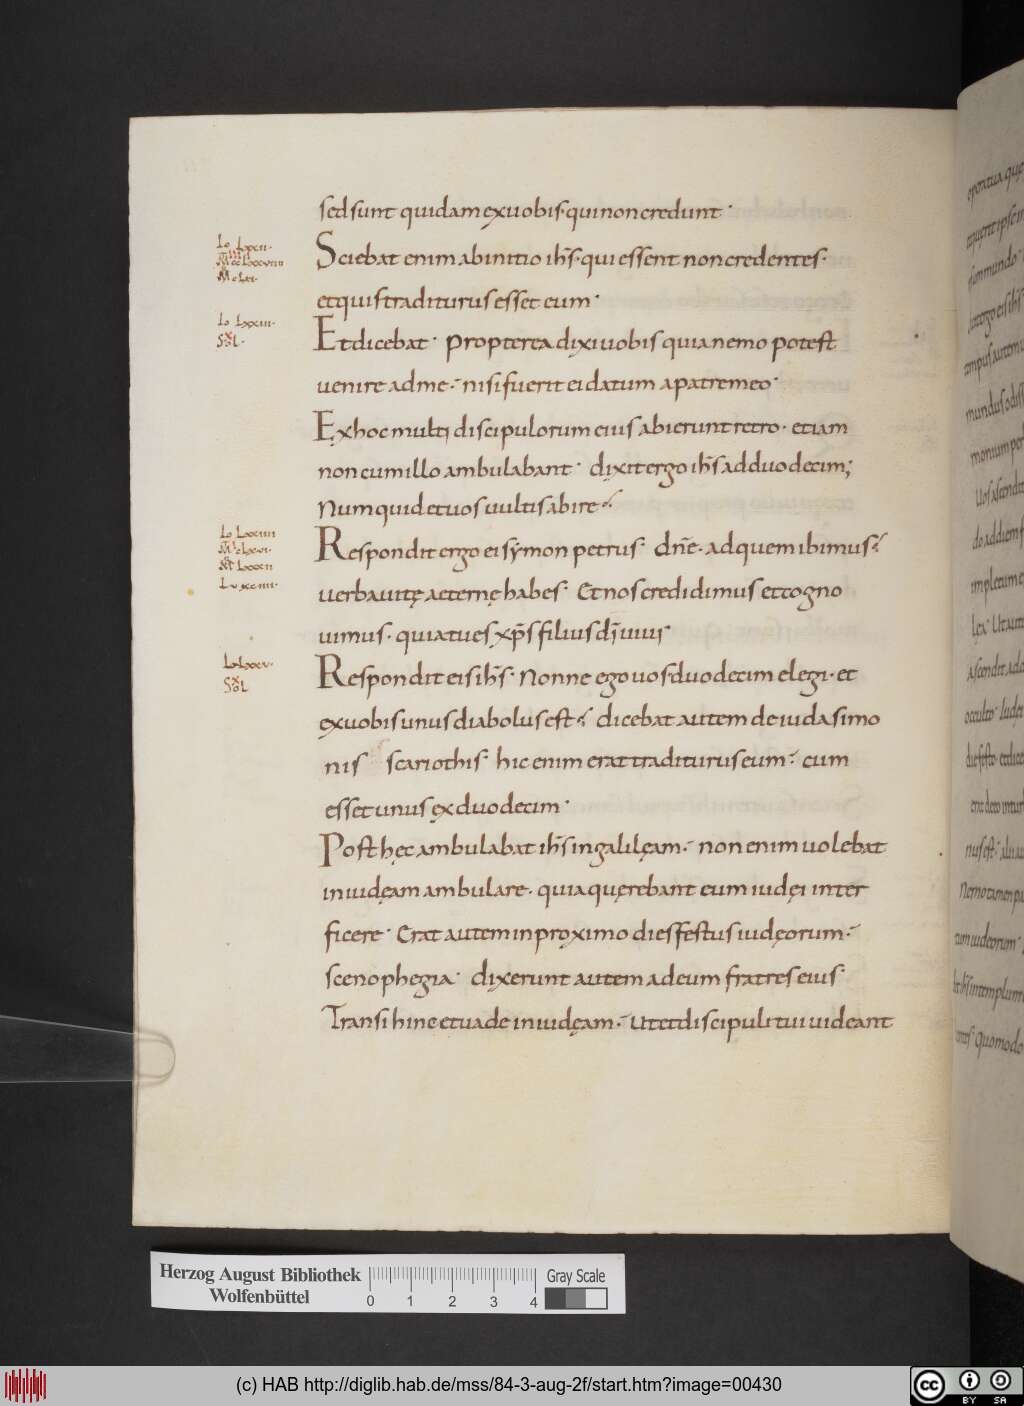 sed sunt quidam ex uobis· qui non credunt·
Io lxxii·
Sciebat enim ab initio ihs· qui essent non credentes·
et quis traditurus esset eum·
Io lxxiii·
Et dicebat· Propterea dixi uobis quia nemo potest
uenire ad me· nisi fuerit ei datum a patre meo·
Ex hoc multi discipulorum eius abierunt retro· et iam
non cum illo ambulabant· dixit ergo ihs ad duodecim;
Numquid et uos uultis abire·
Io lxxiiii
Respondit ergo ei symon petrus· dne· ad quem ibimus·
M lxxxii
L xciiii·
uerba uitę aeternę habes· Et nos credidimus et cogno
uimus· quia tu es xps filius di uiui·
Io lxxv·
Respondit eis ihs· Nonne ego uos duodecim elegi· et
ex uobis unus diabolus est· dicebat autem de iuda simo
nis scariothis· hic enim erat traditurus eum· cum
esset unus ex duodecim·
Post hęc ambulabat ihs in galilęam· non enim uolebat
in iudęam ambulare· quia quęrebant eum iudęi inter
ficere· Erat autem in proximo dies festus iudęorum·
scenophegia· dixerunt autem ad eum fratres eius·
Transi hinc et uade in iudęam· ut et discipuli tui uideant
Herzog August Bibliothek
Wolfenbüttel
0 1 2 3 4
Gray Scale
(c) HAB http://diglib.hab.de/mss/84-3-aug-2f/start.htm?image=00430
cc BY SA